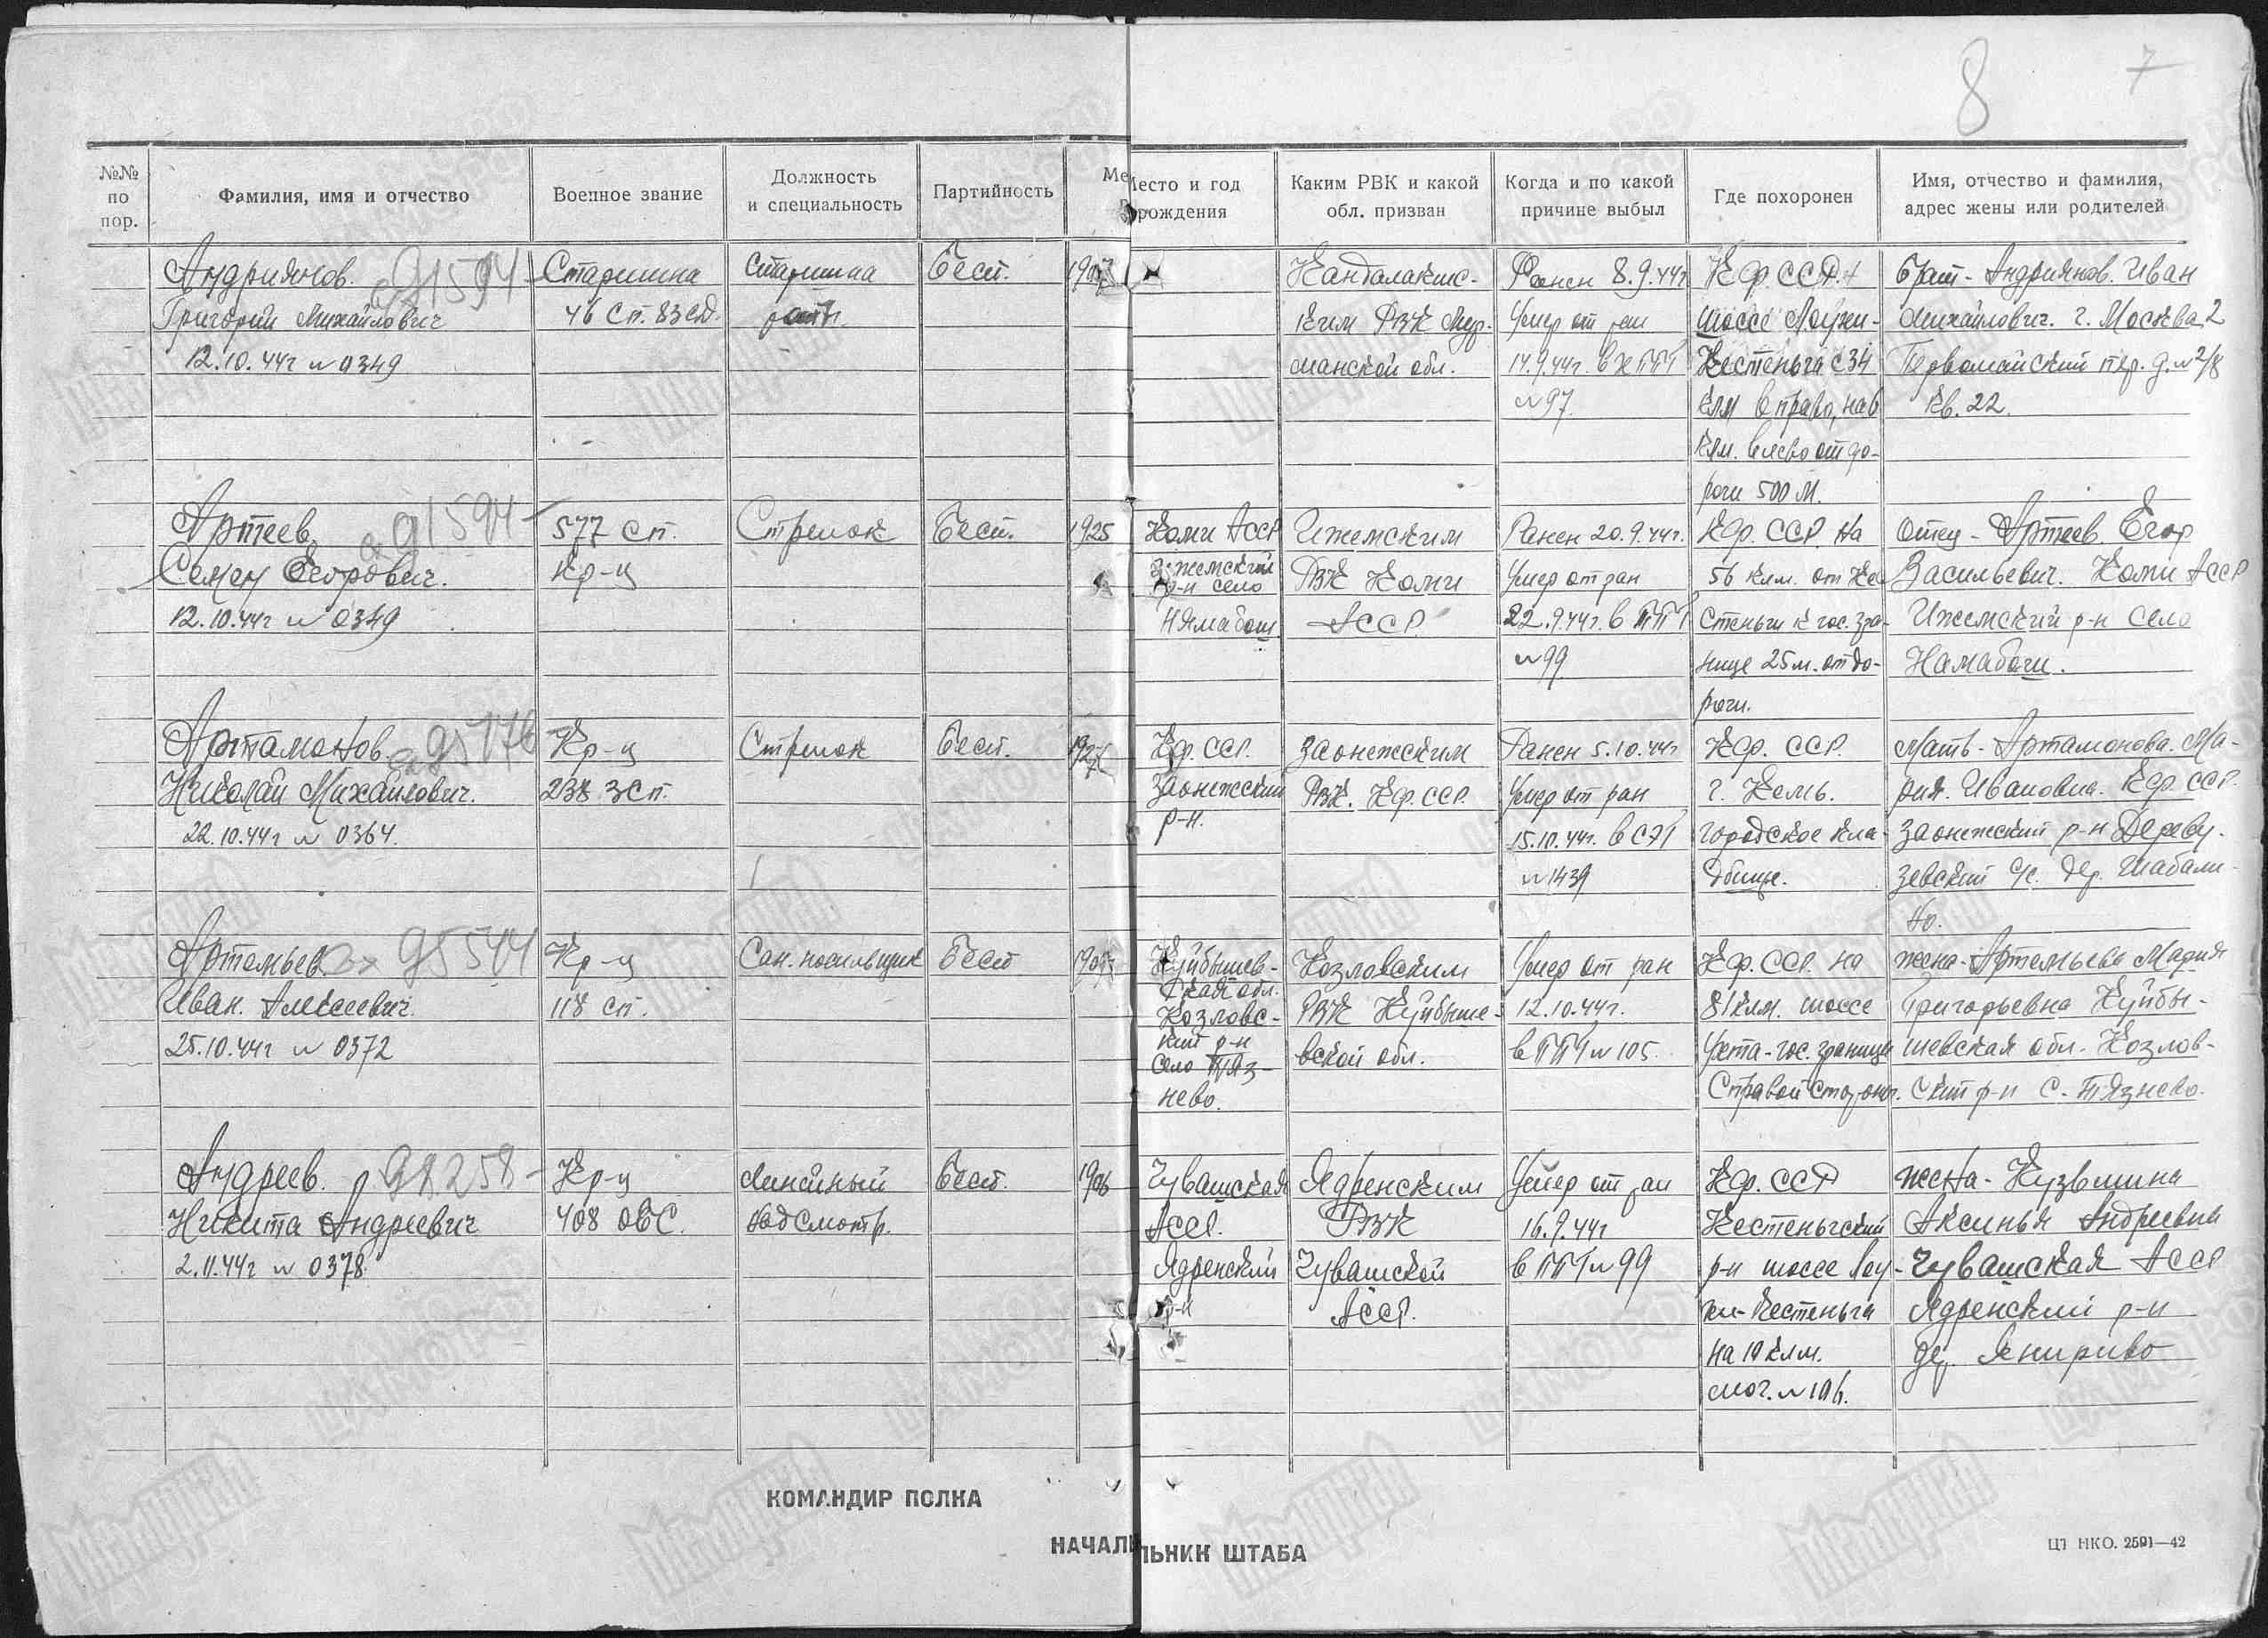 8 7
№№ по пор.
Фамилия, имя и отчество
Военное звание
Должность и специальность
Партийность
Место и год рождения
Каким РВК и какой обл. призван
Когда и по какой причине выбыл
Где похоронен
Имя, отчество и фамилия, адрес жены или родителей
Андриянов. 91594
Григорий Михайлович
12.10.44г № 0349
Старшина
46 сп. 83 сд.
Старшина
роты.
Бесп.
Кандалакшс-
ким РВК Мур-
манской обл.
Ранен 8.9.44г
Умер от ран
14.9.44г. в ХППГ
№ 97.
КФ. ССР.
шоссе Лоухи-
Кестеньга с 34
клм вправо, на 6
клм. влево от до-
роги 500 м.
брат - Андриянов. Иван
Михайлович. г. Москва 2
Первомайский пер. д. № 2/8
кв. 22.
Артеев. 91594
Семен Егорович.
12.10.44г № 0349
577 сп.
Кр-ц
Стрелок
Бесп.
1925
Коми АССР
Ижемский
р-н село
Нямабож.
Ижемским
РВК Коми
АССР.
Ранен 20.9.44г.
Умер от ран
22.9.44г. в ППГ
№ 99
КФ. ССР. на
56 клм. от Ке-
стеньги к гос. гра-
нице 25 м. от до-
роги.
Отец - Артеев. Егор
Васильевич. Коми АССР
Ижемский р-н село
Артамонов
Николай Михайлович.
22.10.44г № 0364.
Кр-ц
238 зсп.
Стрелок
Бесп.
КФ. ССР.
Заонежский
р-н.
Заонежским
РВК. КФ. ССР.
Ранен 5.10.44г
Умер от ран
15.10.44г. в СЭГ
№ 1439
КФ. ССР.
г. Кемь.
городское кла-
дбище.
Мать - Артамонова. Ма-
рия. Ивановна. КФ. ССР.
Заонежский р-н Дереву-
зевский с/с. дер. Шабали-
но.
Артемьев 95544
Иван. Алексеевич.
25.10.44г № 0372
Кр-ц
118 сп.
Сан. носильщик
Бесп
Куйбышев-
ская обл.
Козловс-
кий р-н
село Тяз-
нево.
Козловским
РВК Куйбыше-
вской обл.
Умер от ран
12.10.44г.
в ППГ № 105.
КФ. ССР. на
81 клм. шоссе
Ухта - гос. граница
с правой стороны.
жена - Артемьева Мария
Григорьевна Куйбы-
шевская обл. Козлов-
ский р-н с. Тязнево.
Андреев. 98258
Никита Андреевич
2.11.44г № 0378
Кр-ц
408 ОВС.
Линейный
надсмотр.
Бесп.
1906
Чувашская
АССР.
Ядренский
р-н
Ядренским
РВК
Чувашской
АССР.
Умер от ран
16.9.44г
в ППГ № 99
КФ. ССР
Кестеньгский
р-н шоссе Лоу-
хи - Кестеньга
на 19 клм.
мог. № 106.
жена - Кузьмина
Аксинья Андреевна
Чувашская АССР
Ядренский р-н
дер. Янириво
КОМАНДИР ПОЛКА
НАЧАЛЬНИК ШТАБА
ЦТ НКО. 2591—42